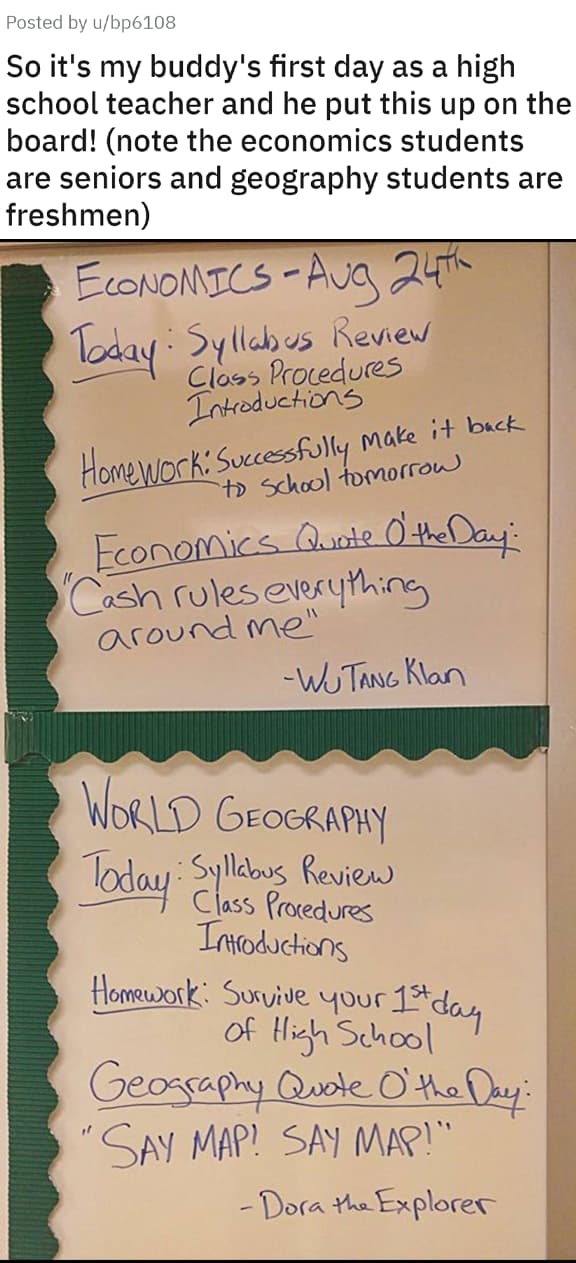 Posted by u/bp6108
So it's my buddy's first day as a high
school teacher and he put this up on the
board! (note the economics students
are seniors and geography students are
freshmen)
ECONOMICS - Aug 24th
Today: Syllabus Review
Class Procedures
Introductions
Homework: Successfully make it back
to school tomorrow
Economics Quote O' the Day:
"Cash rules everything
around me"
- WU TANG Klan
WORLD GEOGRAPHY
Today: Syllabus Review
Class Procedures
Introductions
Homework: Survive your 1st day
of High School
Geography Quote O' the Day:
"SAY MAP! SAY MAP!"
- Dora the Explorer